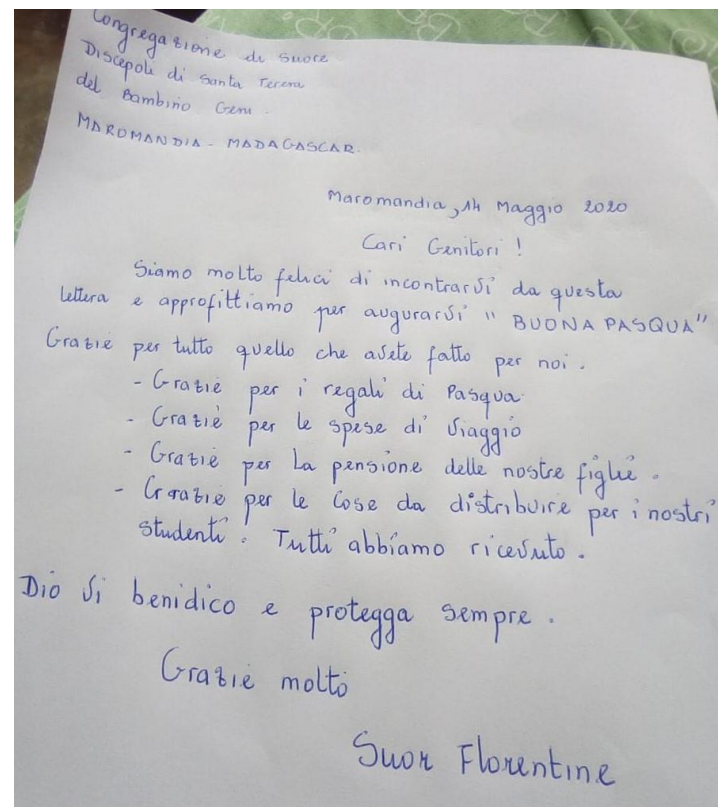 Congregazione di suore
Discepoli di Santa Teresa
del Bambino Gesu.
MAROMANDIA - MADAGASCAR.
Maromandia, 14 Maggio 2020
Cari Genitori !
Siamo molto felici di incontrarvi da questa
lettera e approfittiamo per augurarvi " BUONA PASQUA"
Grazie per tutto quello che avete fatto per noi.
- Grazie per i regali di Pasqua
- Grazie per le spese di viaggio
- Grazie per La pensione delle nostre figlie.
- Grazie per le cose da distribuire per i nostri
studenti. Tutti abbiamo ricevuto.
Dio vi benidico e protegga sempre.
Grazie molto
Suor Florentine